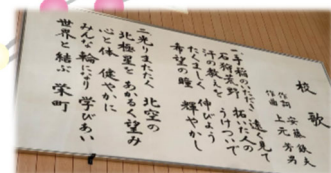 校歌
作詞 安藤鉄夫
作曲 上元芳男
一、手稲のいただき 遠く見て
石狩荒野 拓いた人の
汗の教えを うけついで
たくましく 伸びよう
希望の瞳 輝やかし
二、光りまたたく 北空の
北極星を あかるく望み
心と体 健やかに
みんな輪になり 学びあい
世界と結ぶ 栄町